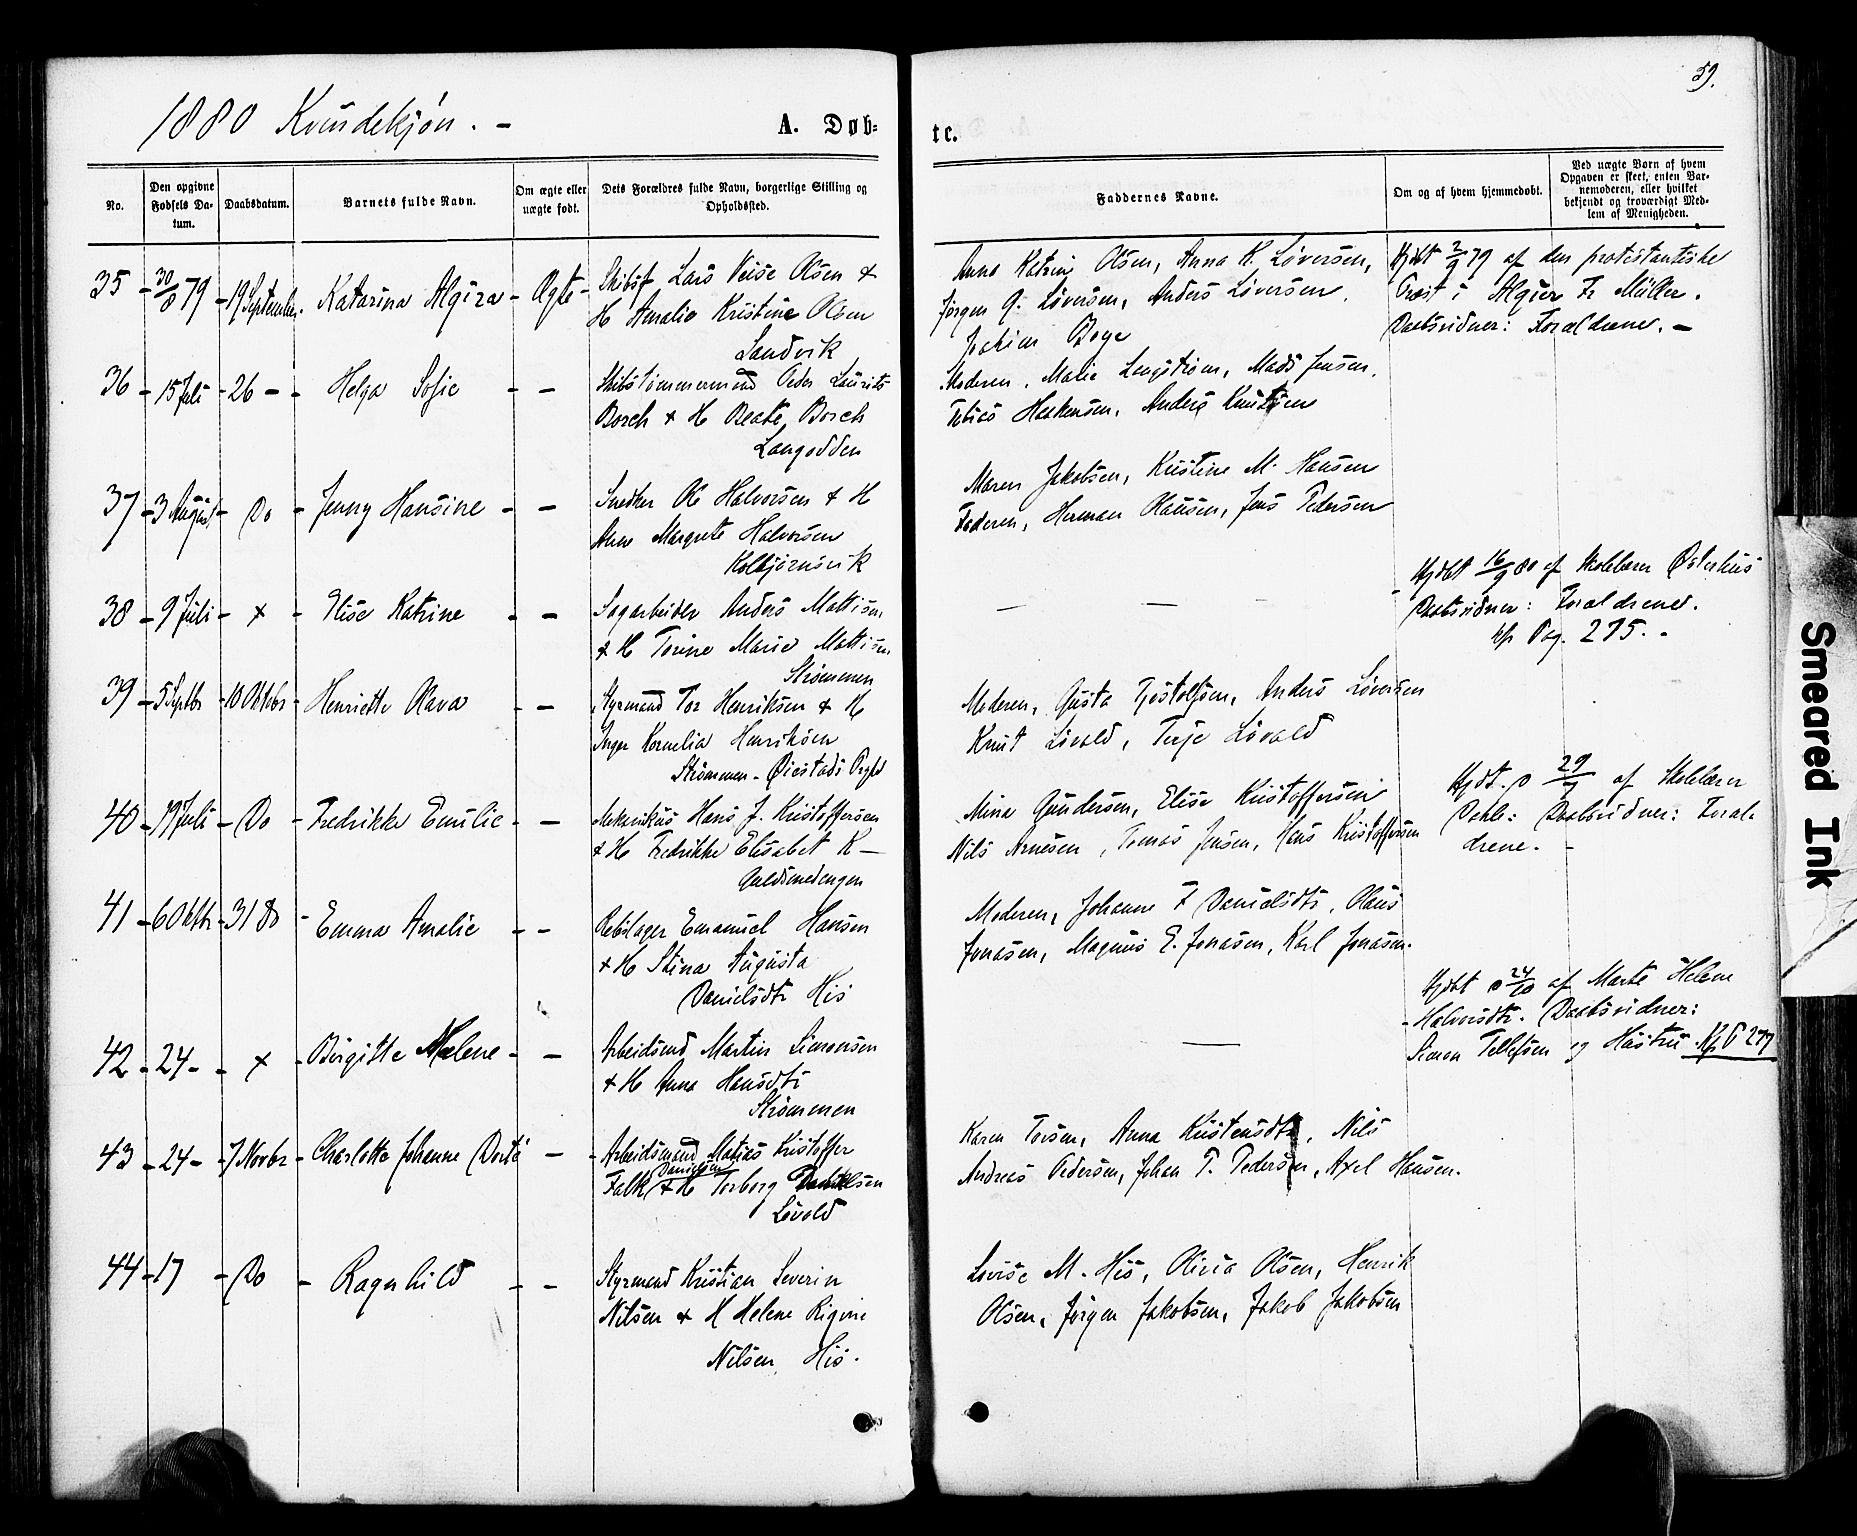 59.
1880 Kvindekjøn. -
A. Døb-
te.
No.
Den opgivne Fødsels Da-
tum.
Daabsdatum.
Barnets fulde Navn.
Om ægte eller
uægte født.
Dets Forældres fulde Navn, borgerlige Stilling og
Opholdssted.
Faddernes Navne.
Om og af hvem hjemmedøbt.
Ved uægte Barn af hvem
Opgaven er skeet, enten Bar-
nemoderen, eller hvilket
bekjendt og troværdigt Med-
lem af Menigheden.
35 - 30/8 79 - 19 September. Katarina Algira - Ægte -
Skibsf Lars Veise Olsen &
H Amalie Kristine Olsen
Sandvik
Anne Katrine Olsen, Anna K. Løversen,
Jørgen G. Løversen, Anders Løversen,
Joakim Boye
Hjdbt 2/9 79 af den protestantiske
Præst i Algier Fr Müller.
Daabsvidner: Forældrene. -
36 - 15 Juli - 26 - - Helga Sofie - -
Skibstømmermand Peder Laurits
Borch & H Beate Borch
Langodden
Moderen, Malie Langstrøm, Mads Jensen,
Tobias Haakensen, Anders Knutsen
37 - 3 August - Do - Jenny Hansine - -
Snedker Ole Halvorsen & H
Anne Margrete Halvorsen
Kolbjørnsvik
Maren Jakobsen, Kristine M. Hansen
Faderen, Herman Klausen, Jens Pedersen
38 - 9 Juli - x - Elise Katrine - -
Sagarbeider Anders Mattisen
& H Torine Marie Mattisen
Strømmen
- - -
Hjdbt 16/9 80 af Skolelærer Østerhus
Daabsvidner: Forældrene.
kfr Pag. 275. -
39 - 5 Septbr - 10 Oktobr - Henriette Olava - -
Styrmand Tor Henriksen & H
Inger Kornelia Henriksen
Strømmen - Øiestads Prgld
Moderen, Gusta Tjostolfsen, Anders Løversen
Knut Løvold, Terje Løvold
40 - 19 Juli - Do - Fredrikke Emilie - -
Mekanikus Hans J. Kristoffersen
& H Fredrikke Elisabet K -
Guldsmedengen
Mina Gundersen, Elise Kristoffersen
Nils Arnesen, Tomas Jensen, Hans Kristoffersen
Hjdt. 29/ af Skolelærer
Dahl: Daabsvidner: Foræl-
drene. -
41 - 6 Oktbr - 31 Do - Emma Amalie - -
Rebslager Emanuel Hansen
& H Stina Augusta
Danielsdtr His
Moderen, Johanne F Danielsdtr, Olaus
Jonasen, Magnus E. Jonasen, Karl Jonasen.
42 - 24 - - x - Birgitte Malene - -
Arbeidsmd Martin Simonsen
& H Anna Hansdtr
Strømmen
-
Hjdbt 24/10 af Marte Helene
Halvorsdtr. Daabsvidner:
Simon Tellefsen og Hustru. Kfr P 277
43 - 24 - - 7 Novbr - Charlotte Johanne Dorte - -
Arbeidsmand Matias Kristoffer
Danielsen
Falk & H Torborg Danielsen
Løvold
Karen Torsen, Anna Kristensdtr, Nils
Andreas Pedersen, Johan T. Pedersen, Axel Hansen.
44 - 17 - Do - Ragnhild - -
Styrmand Kristian Severin
Nilsen & H Helene Rigine
Nilsen, His.
Lovise M. His, Olivia Olsen, Henrik
Olsen, Jørgen Jakobsen, Jakob Jakobsen
Smeared Ink